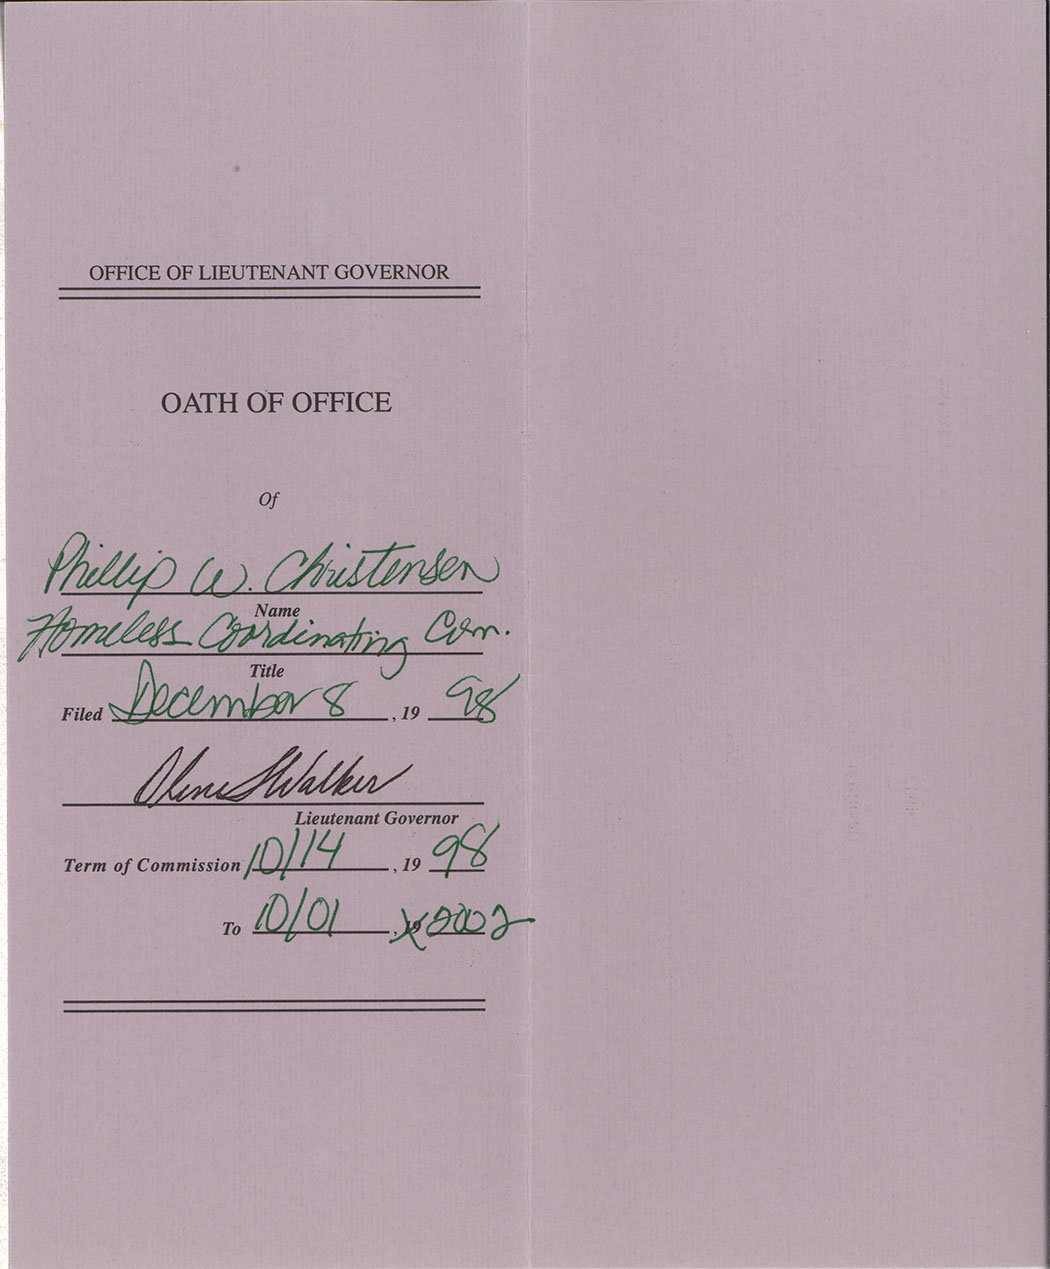 OFFICE OF LIEUTENANT GOVERNOR
OATH OF OFFICE
Of
Phillip W. Christensen
Name
Homeless Coordinating Com.
Title
Filed December 8, 19 98
Olene S Walker
Lieutenant Governor
Term of Commission 10/14, 19 98
To 10/01, 19 2002